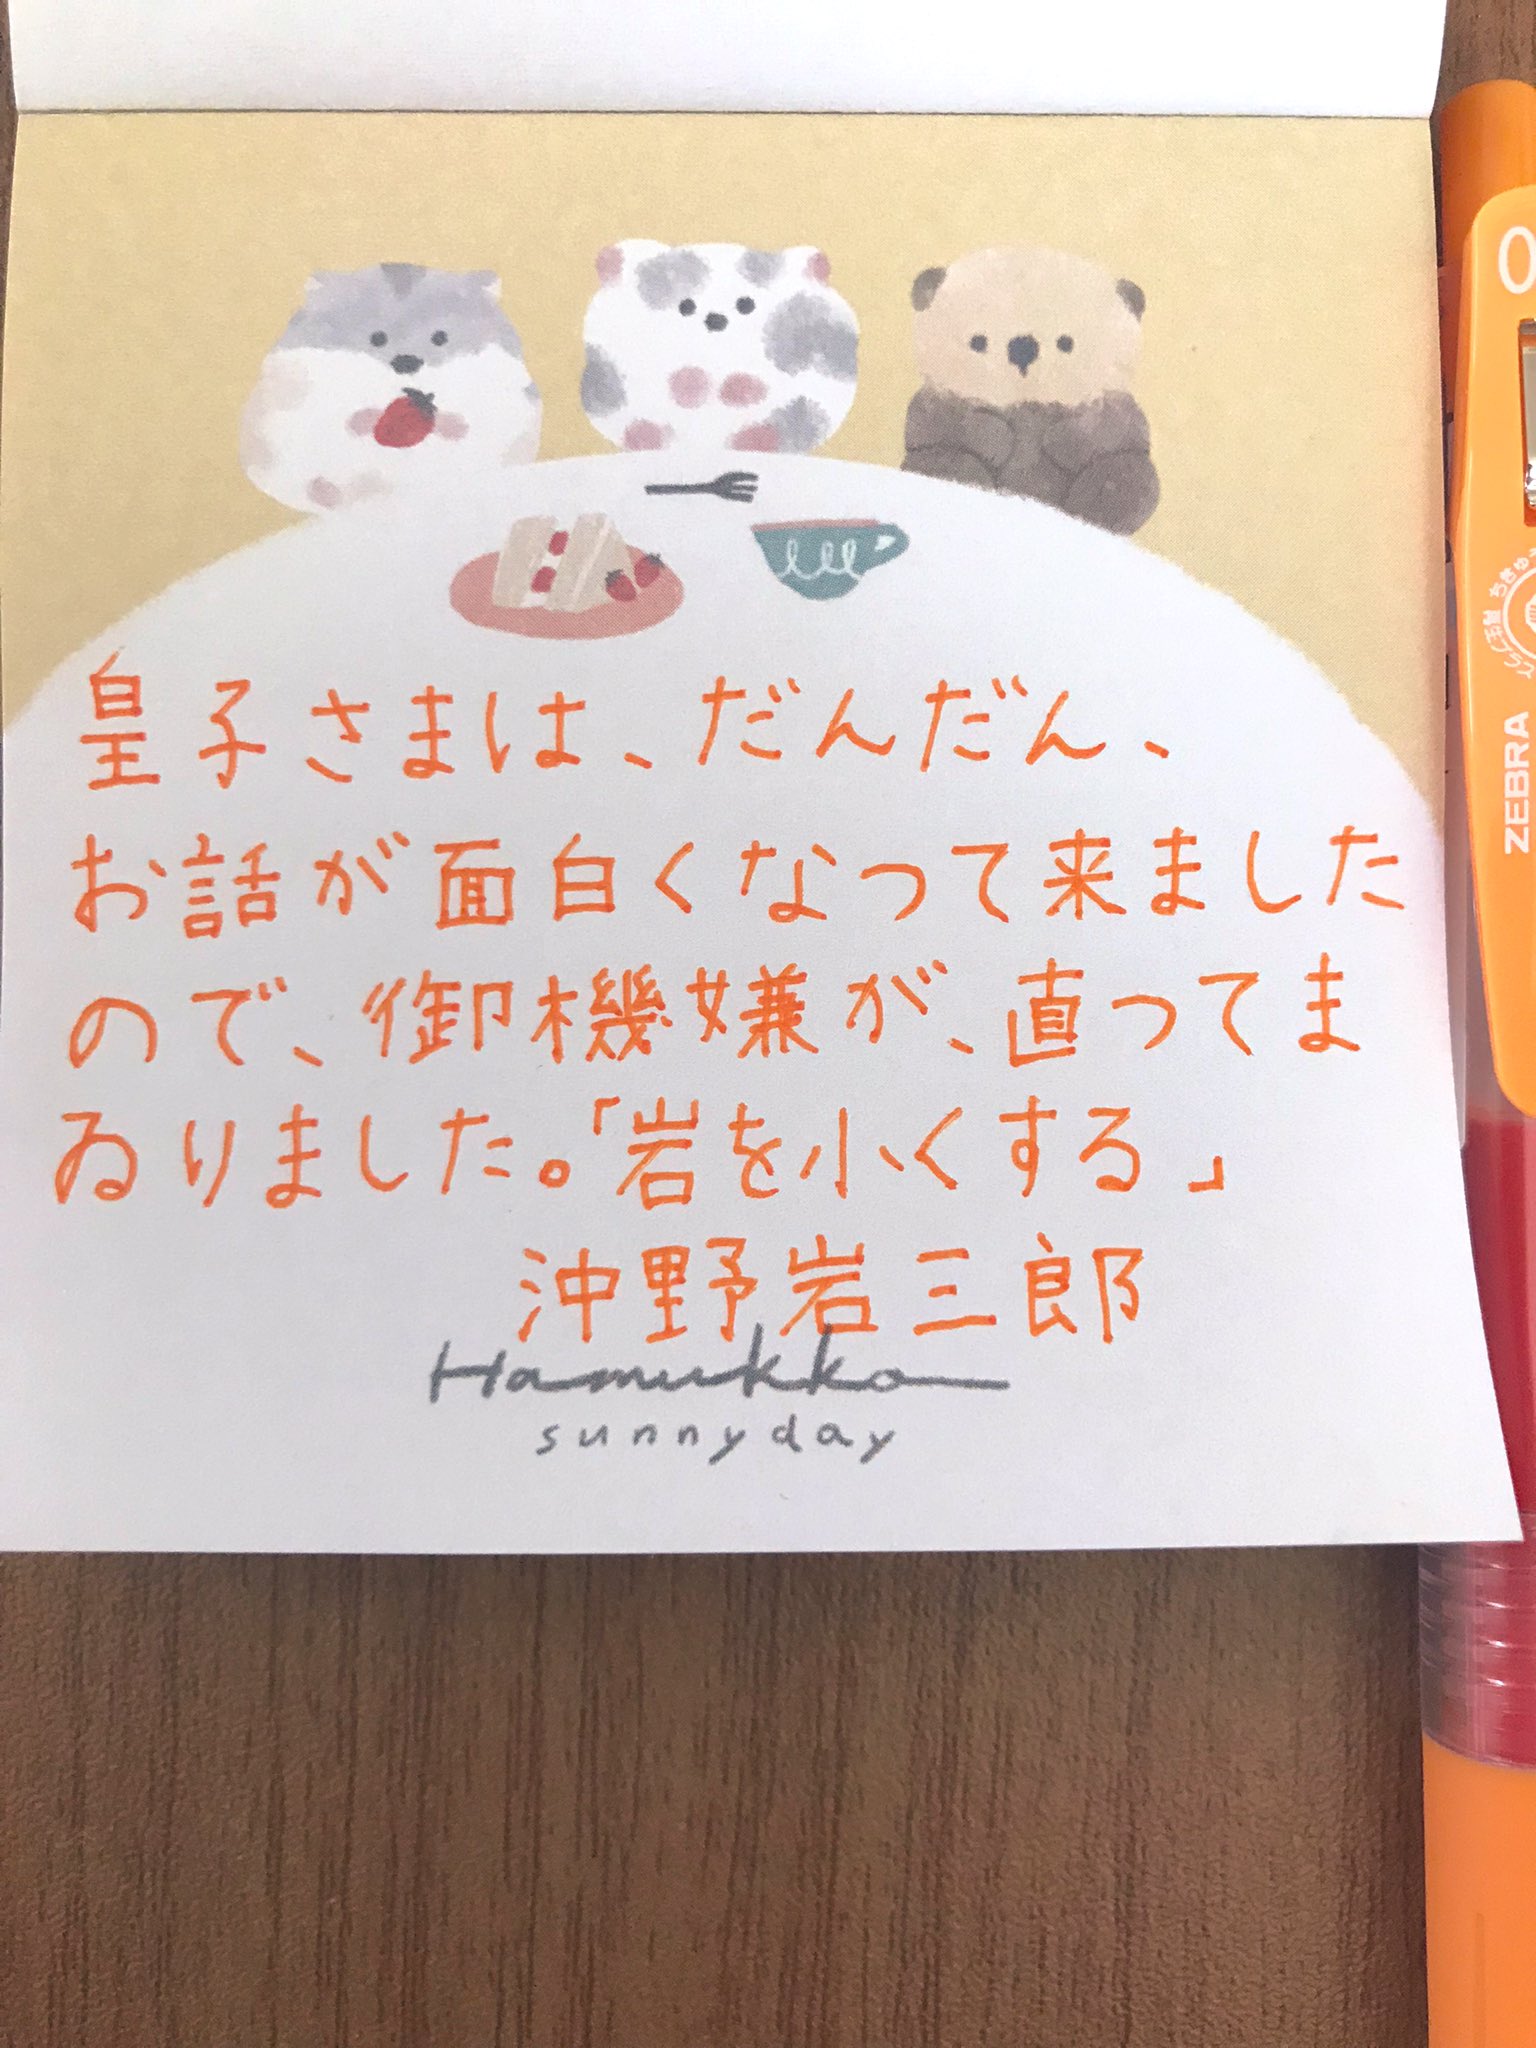 皇子さまは、だんだん、
お話が面白くなつて来ました
ので、御機嫌が、直つてま
ゐりました。「岩を小くする」
沖野岩三郎
Hamukko
sunnyday
ZEBRA